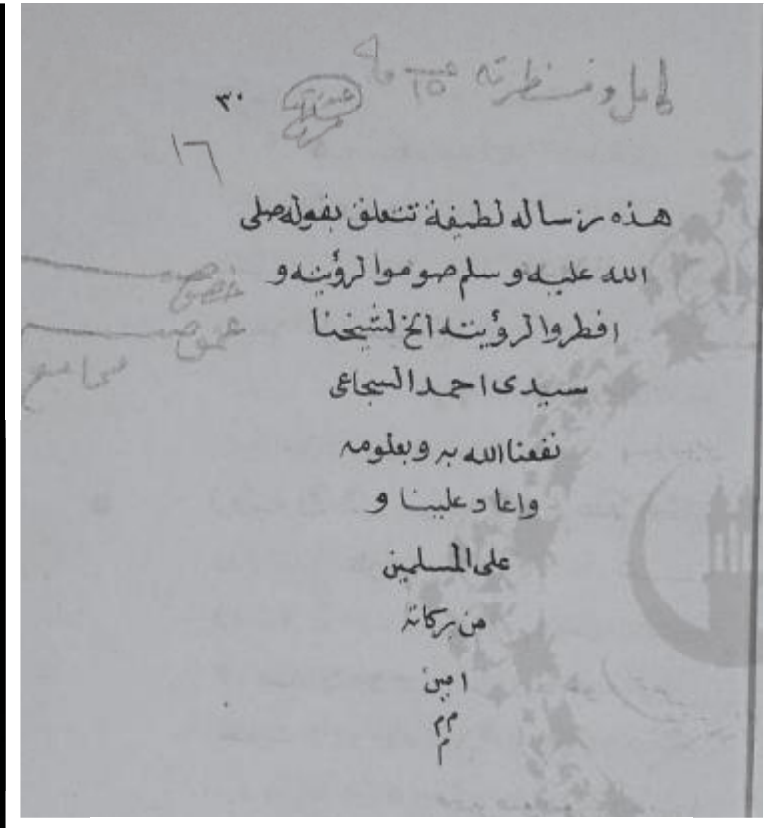 كامل و منظرته ١٥
٣٠
١٦
هذه رساله لطيفة تتعلق بقوله صلى
الله عليه وسلم صوموا لرؤيته و
افطروا لرؤيته الخ لشيخنا
سيدى احمد السجاعى
نفعنا الله به وبعلومه
واعاد علينا و
على المسلمين
من بركاته
امين
م م
م
خصوص
عموم
مجاميع